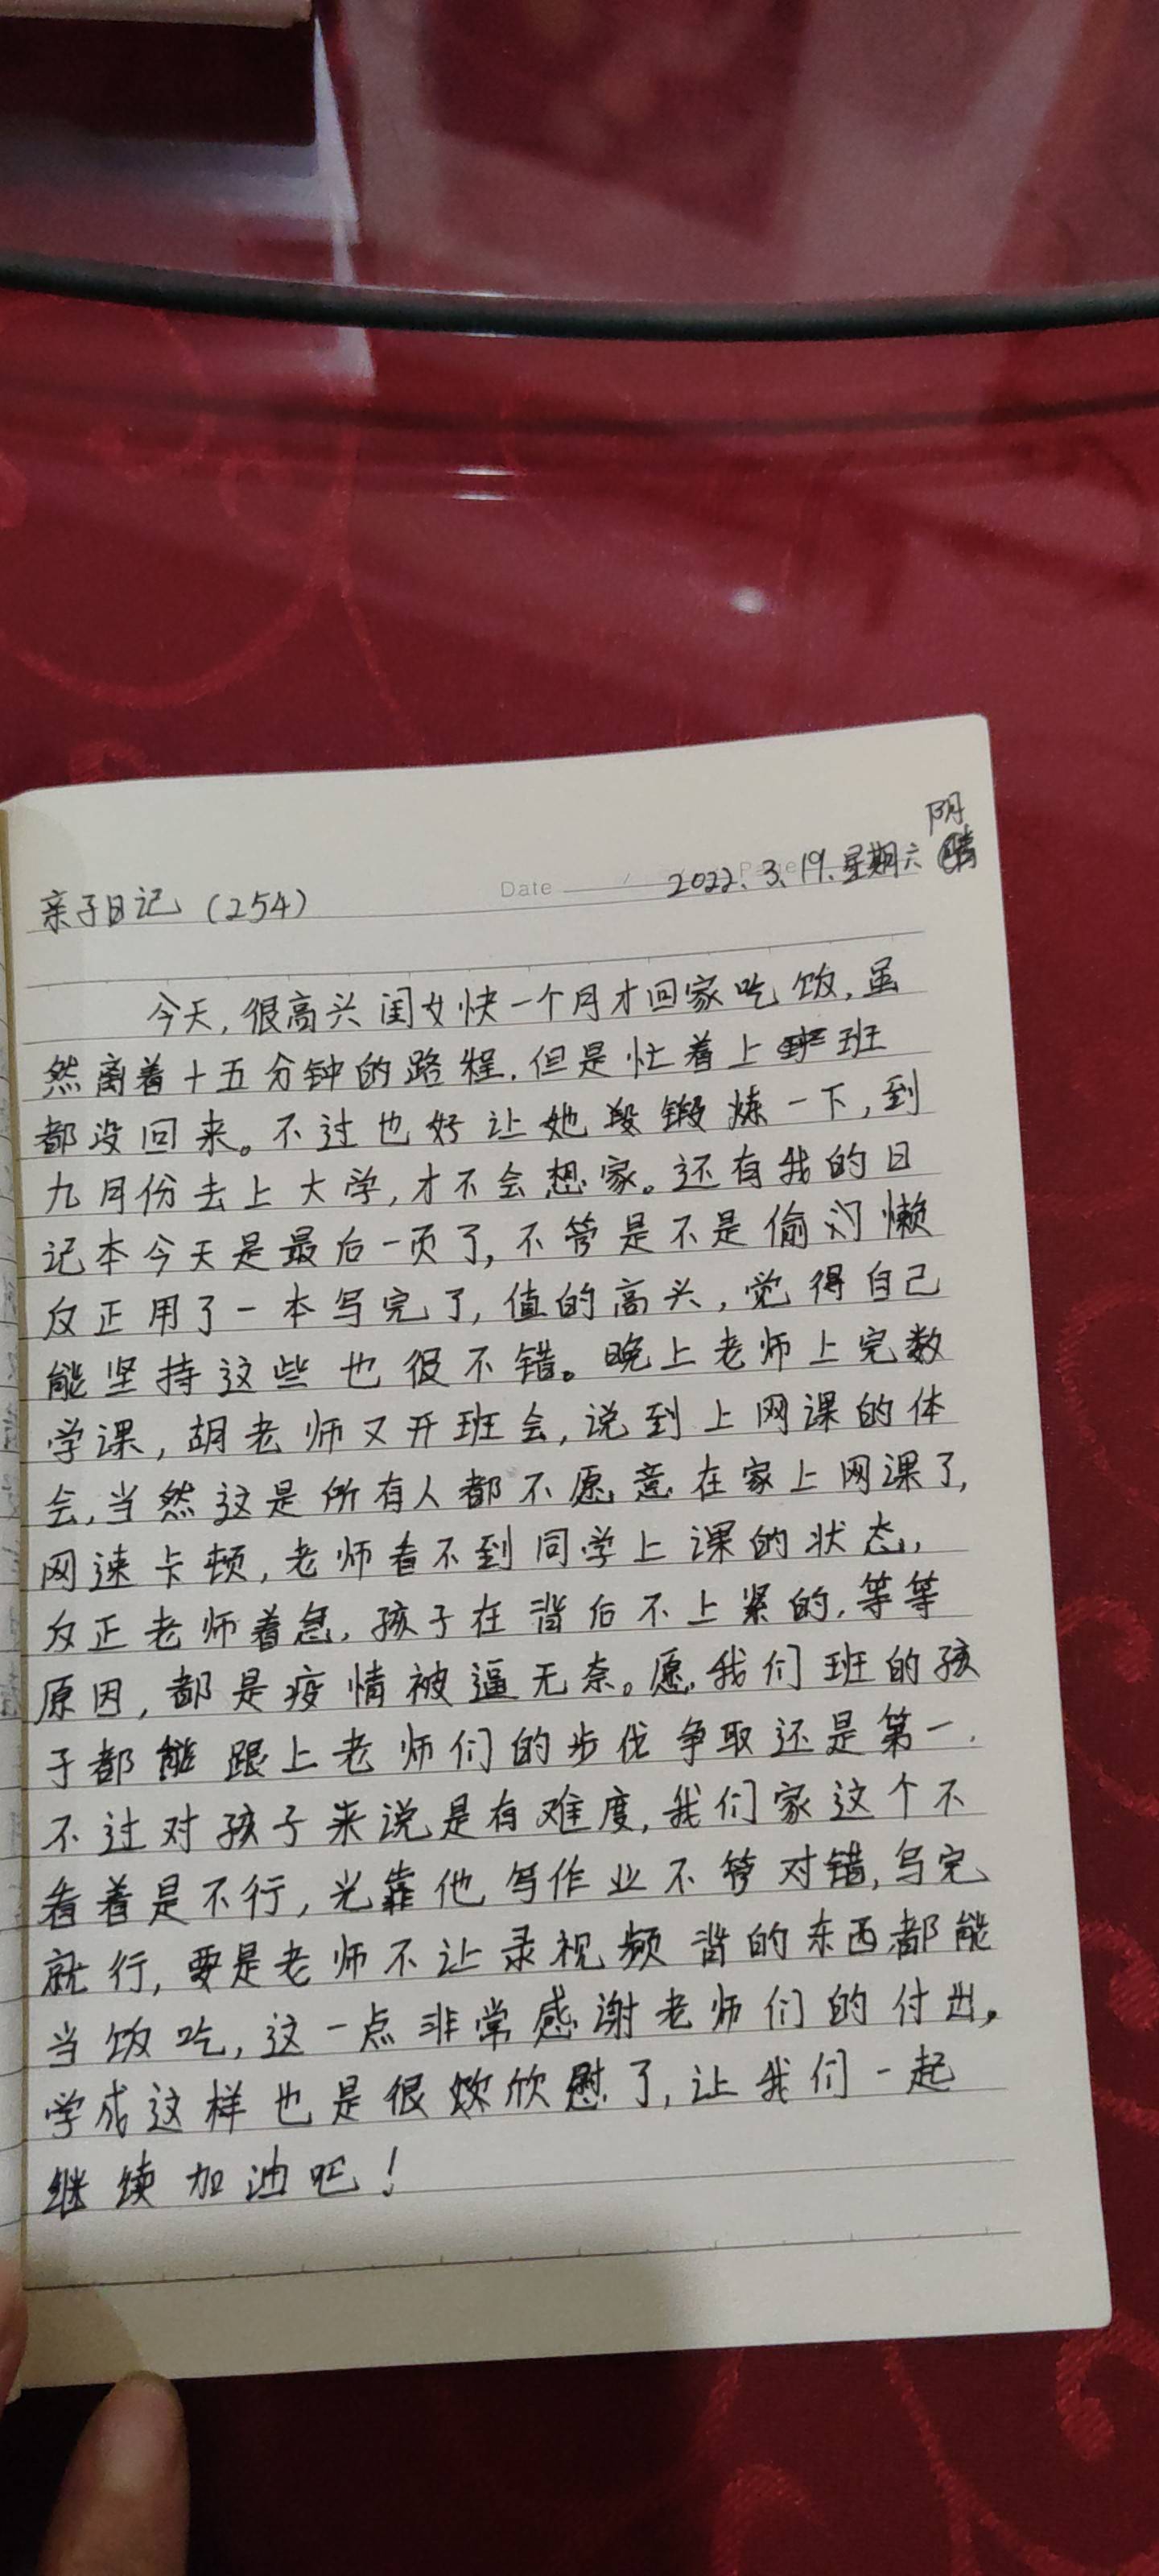 阴
Date 2022.3.19.星期六
亲子日记(254)
今天,很高兴闺女快一个月才回家吃饭,虽
然离着十五分钟的路程.但是忙着上班
都没回来。不过也好让她段锻炼一下,到
九月份去上大学,才不会想家。还有我的日
记本今天是最后一页了,不管是不是偷懒
反正用了一本写完了,值的高兴,觉得自己
能坚持这些也很不错。晚上老师上完数
学课,胡老师又开班会,说到上网课的体
会,当然这是所有人都不愿意在家上网课了,
网速卡顿,老师看不到同学上课的状态,
反正老师着急,孩子在背后不上紧的,等等
原因,都是疫情被逼无奈。愿我们班的孩
子都能跟上老师们的步伐争取还是第一.
不过对孩子来说是有难度,我们家这个不
看着是不行,光靠他写作业不管对错,写完
就行,要是老师不让录视频背的东西都能
当饭吃,这一点非常感谢老师们的付出,
学成这样也是很欣慰了,让我们一起
继续加油吧!